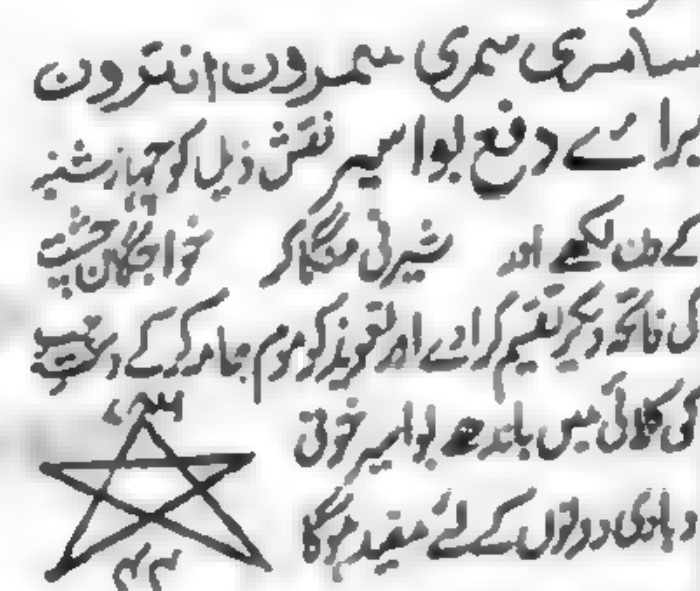 سامری سمری سمرون انترون
برائے دفع بواسیر نقش ذیل کو چہارشنبہ
کے دن لکھے اور شیرنی منگا کر خواجگان چشت
کی فاتحہ دیکر تقسیم کرادے اور تعویذ کو موم جامہ کر کے دست
کی کلائی میں باندھ بواسیر خونی
وبادی دونوں کے لئے مفید ہوگا